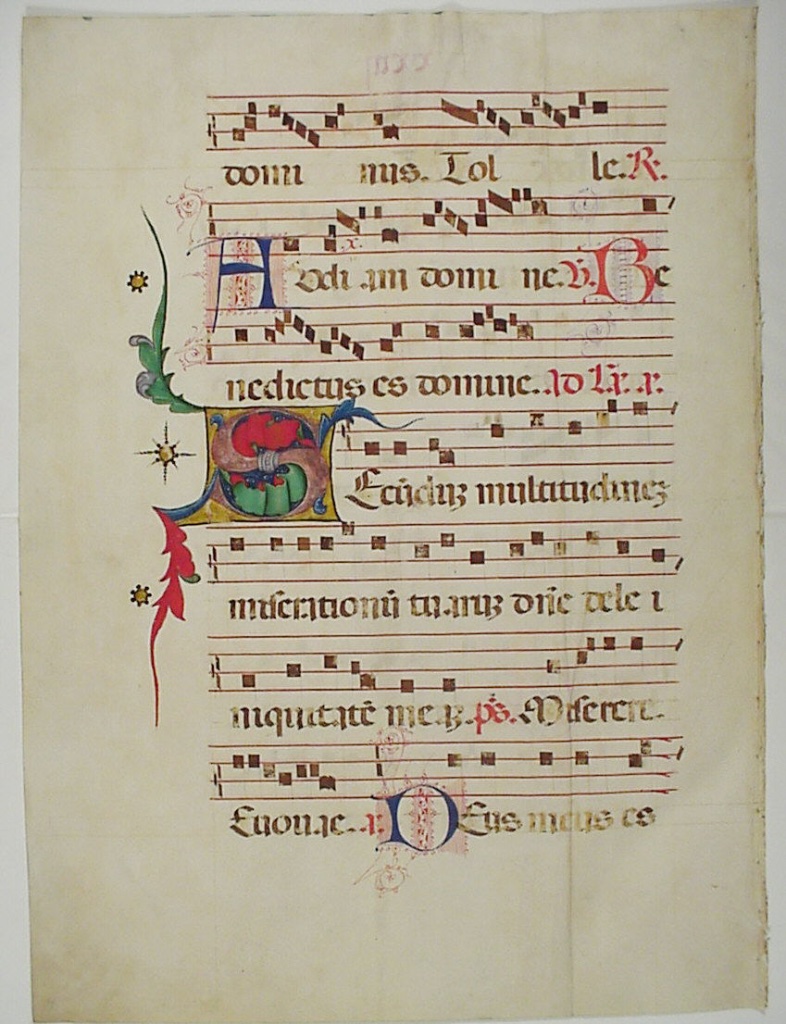 domi nus. Tol le. R.
Audiam domi ne. V. Be
nedictus es domine. ad La. a.
Secūduz multitudinez
miserationū tuaruz dñe dele i
niquitatē meaz. ps. Miserere.
Euouae. a. Deus meus es